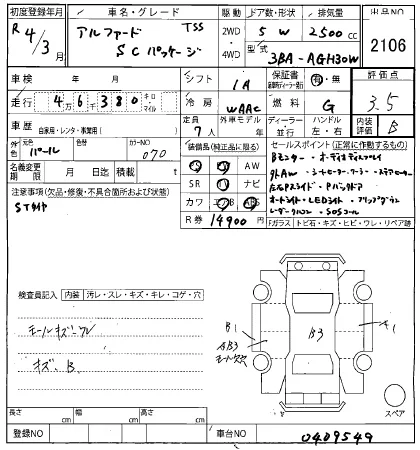 初度登録年月 車名・グレード 駆動 ドア数・形状 排気量 出品NO
R 4/3 アルファード TSS 2WD 4WD 5 W 2500 cc 2106
SCパッケージ 型式 3BA-AGH30W
車検 年 月 シフト IA 保証書 有・無 評価点
走行 4万6千380 キロ・マイル 冷房 WAAC 燃料 G 3.5
車歴 自家用・レンタ・事業用( ) 定員 7人 外車モデル 年 ディーラー 並行 ハンドル 左・右 内装 B
外色 元色 パール 色替 カラーNO 070 装備品(純正品に限る) セールスポイント(正常に作動するもの)
名義変更期限 月 日迄 積載 t PS PW AW
SR ナビ
カワ エアB ABS
R券 14900円
Bモニター・オーディオディスプレイ
左右Pスライド・Pバックドア
オートライト・LEDライト・フリップダウン
レーダークルコン・SOSコール
Fガラス・トビ石・キズ・ヒビ・ワレ・リペア跡
注意事項(欠品・修復・不具合箇所および状態)
STタイヤ
検査員記入 内装 汚レ・スレ・キズ・キレ・コゲ・穴
モールキズ・ワレ
キズ、B
B1
AB3
B3
A1
スペア
長さ cm 幅 cm 高さ cm
登録NO 車台NO 0409549